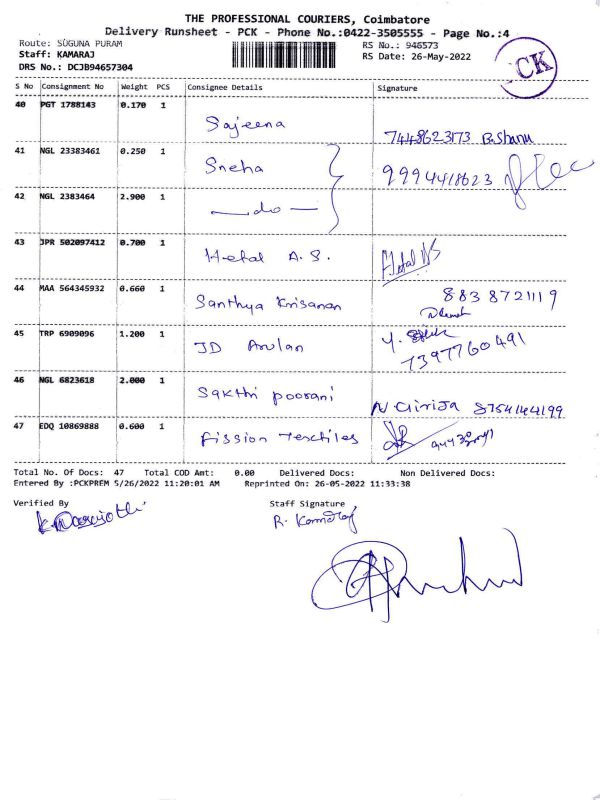 THE PROFESSIONAL COURIERS, Coimbatore
Delivery Runsheet - PCK - Phone No.:0422-3505555 - Page No.:4
Route: SUGUNA PURAM
RS No.: 946573
Staff: KAMARAJ
RS Date: 26-May-2022
DRS No.: DCJB94657304
CK
S No Consignment No Weight PCS Consignee Details Signature
40 PGT 1788143 0.170 1 Sajeena 7448623173 B.Shanu
41 NGL 23383461 0.250 1 Sneha 9994418623
42 NGL 2383464 2.900 1 —do—
43 JPR 502097412 0.700 1 Hetal A.S. Hetal
44 MAA 564345932 0.660 1 Santhya Krisanan 8838721119
45 TRP 6909096 1.200 1 JD Arulan 7397760491
46 NGL 6823618 2.000 1 Sakthi poorani N.Girija 8754144199
47 EDQ 10869888 0.600 1 Fission Textiles
Total No. Of Docs: 47 Total COD Amt: 0.00 Delivered Docs: Non Delivered Docs:
Entered By :PCKPREM 5/26/2022 11:20:01 AM Reprinted On: 26-05-2022 11:33:38
Verified By Staff Signature
R. Kamaraj